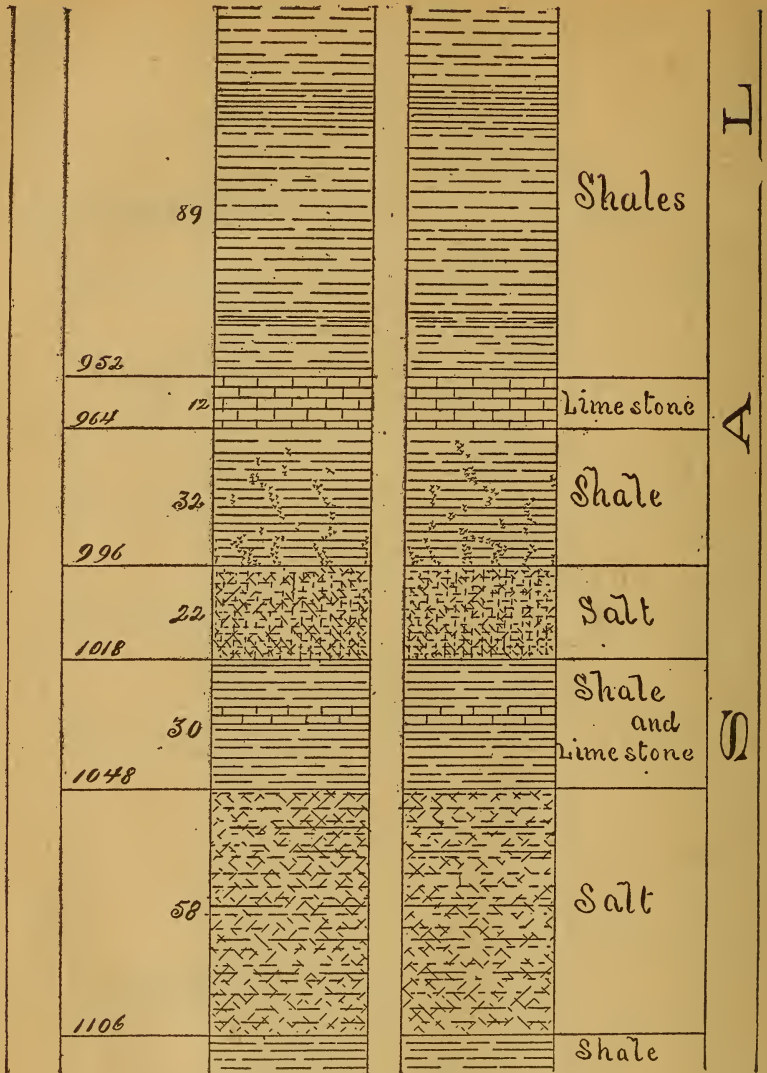 L
89
Shales
952
12
Limestone
964
A
32
Shale
996
22
Salt
1018
30
Shale
and
Limestone
S
1048
58
Salt
1106
Shale